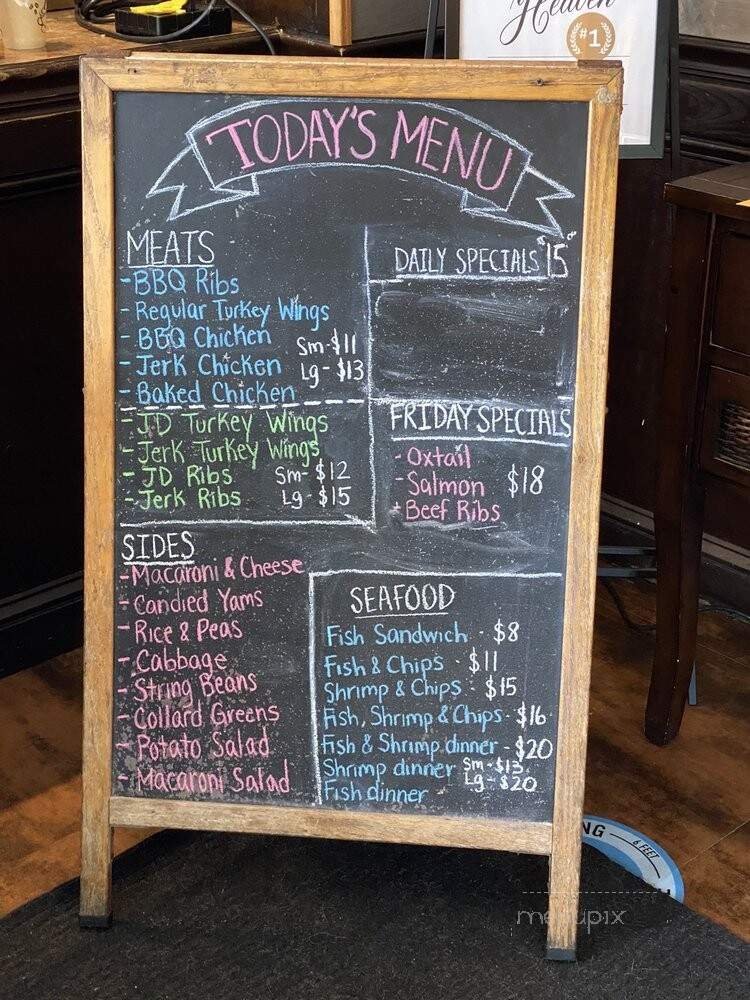 Heaven
#1
TODAY'S MENU
MEATS
-BBQ Ribs
-Regular Turkey Wings
-BBQ Chicken
-Jerk Chicken
-Baked Chicken
Sm-$11
Lg-$13
-JD Turkey Wings
-Jerk Turkey Wings
-JD Ribs
-Jerk Ribs
Sm-$12
Lg-$15
DAILY SPECIALS $15
FRIDAY SPECIALS
-Oxtail
-Salmon
-Beef Ribs
$18
SIDES
-Macaroni & Cheese
-Candied Yams
-Rice & Peas
-Cabbage
-String Beans
-Collard Greens
-Potato Salad
-Macaroni Salad
SEAFOOD
Fish Sandwich - $8
Fish & Chips - $11
Shrimp & Chips - $15
Fish, Shrimp & Chips - $16
Fish & Shrimp dinner - $20
Shrimp dinner
Fish dinner
Sm-$13
Lg-$20
NG
6 FEET
menupix